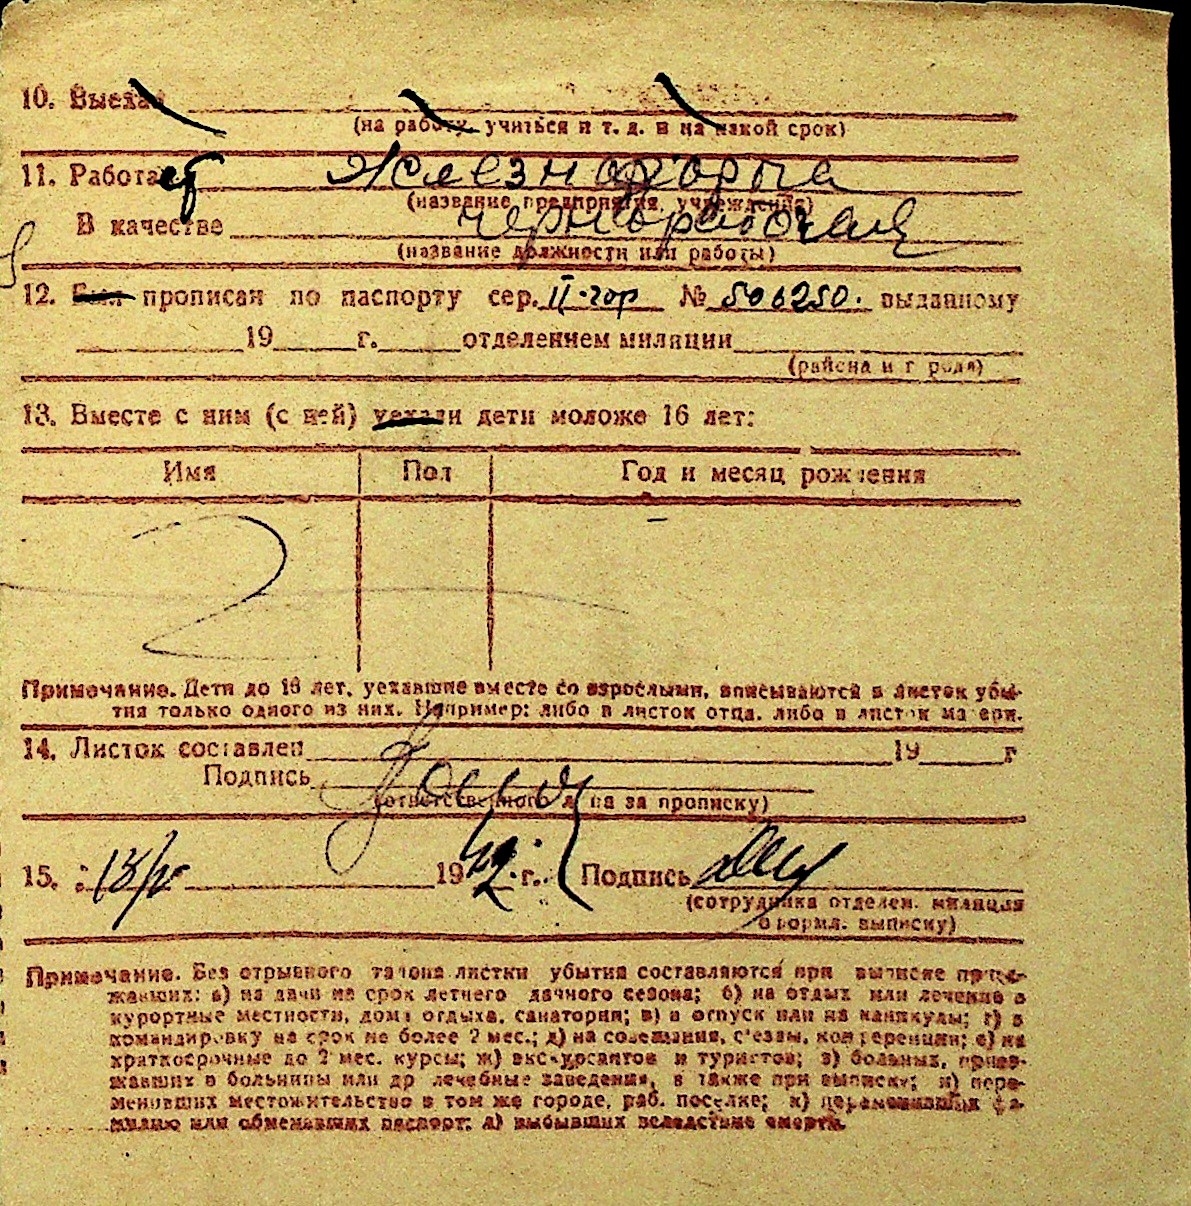 10. Выехал
(на работу, учиться и т. д. и на какой срок)
11. Работает
(название предприятия, учреждения)
В качестве чернорабочая
(название должности или работы)
12. Был прописан по паспорту сер. II-гор № 506250. выданному
19 г. отделением милиции
(района и города)
13. Вместе с ним (с ней) уехали дети моложе 16 лет:
Имя Пол Год и месяц рождения
Примечание. Дети до 16 лет, уехавшие вместе со взрослыми, вписываются в листок убы-
тия только одного из них. Например: либо в листок отца, либо в листок матери.
14. Листок составлен 19 г
Подпись
(ответственного лица за прописку)
15. 19 42 г. Подпись
(сотрудника отделен. милиции
оформл. выписку)
Примечание. Без отрывного талона листки убытия составляются при выписке приез-
жавших: а) на дачи на срок летнего дачного сезона; б) на отдых или лечение в
курортные местности, дома отдыха, санатории; в) в отпуск или на каникулы; г) в
командировку на срок не более 2 мес.; д) на совещания, съезды, конференции; е) на
краткосрочные до 2 мес. курсы; ж) экскурсантов и туристов; з) больных, приез-
жавших в больницы или др лечебные заведения, а также при выписке; и) пере-
менивших местожительство в том же городе, раб. поселке; к) переменивших фа-
милию или обменявших паспорт; л) выбывших вследствие смерти.